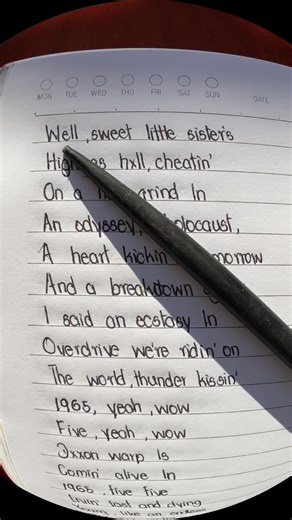 MON TUE WED THU FRI SAT SUN
DATE
Well, sweet little sister's
hxll, cheatin'
On a In
An odyssey,
A heart kickin
And a breakdown
I said an ecstasy In
Overdrive we're ridin' on
The world, thunder kissin'
1965, yeah, wow
Five, yeah, wow
warp Is
Comin' alive In
1965, five five
livin' fast and dying